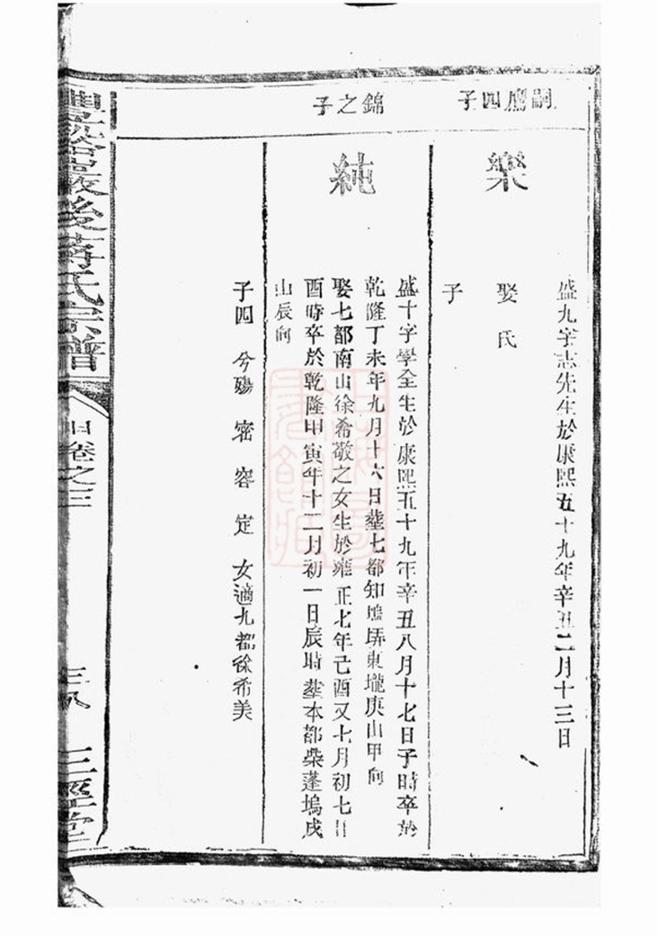 嗣鷹四子
樂
盛九字志先生於康熙五十九年辛丑二月十三日
娶氏
子
錦之子
純
盛十字學全生於康熙五十九年辛丑八月十七日子時卒於
乾隆丁未年九月十六日塟七都知塢弄東壠庚山甲向
娶七都南山徐希敬之女生於雍正七年己酉又七月初七日
酉時卒於乾隆甲寅年十二月初一日辰時塟本都柴蓬塢戌
山辰向
子四 兮殤 密 容 定 女適九都徐希美
巖後蔣氏宗譜
卷之三
三經堂